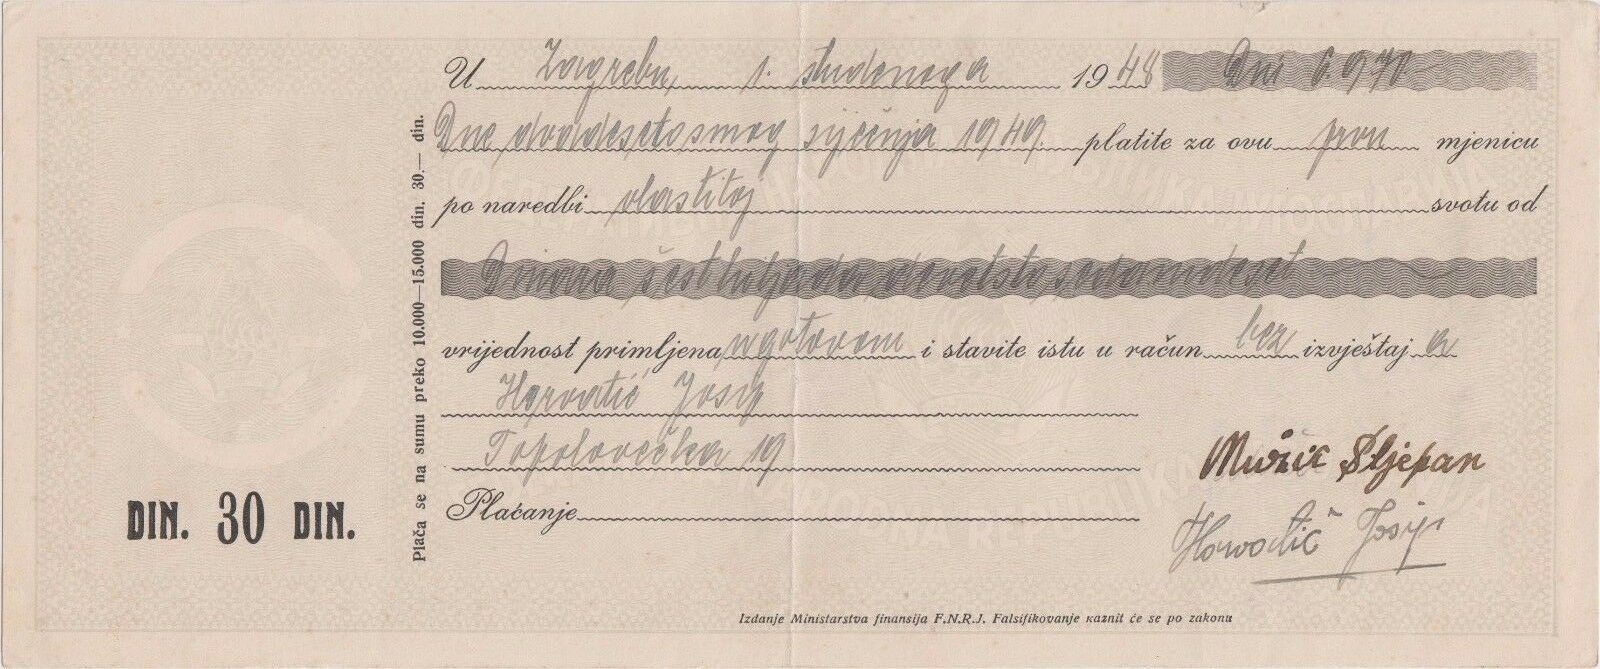 U Zagrebu, 1. studenoga 1948 Din 6.970.–
Dne dvadesetosmog siječnja 1949. platite za ovu prvu mjenicu
po naredbi vlastitoj svotu od
Dinara šesthiljada devetstosedamdeset
vrijednost primljena u gotovom i stavite istu u račun bez izvještaj a
Horvatić Josip
Topolovečka 19
Mužić Stjepan
Plaćanje
Horvatić Josip
DIN. 30 DIN.
Plaća se na sumu preko 10.000—15.000 din. 30.— din.
Izdanje Ministarstva finansija F.N.R.J. Falsifikovanje kaznit će se po zakonu